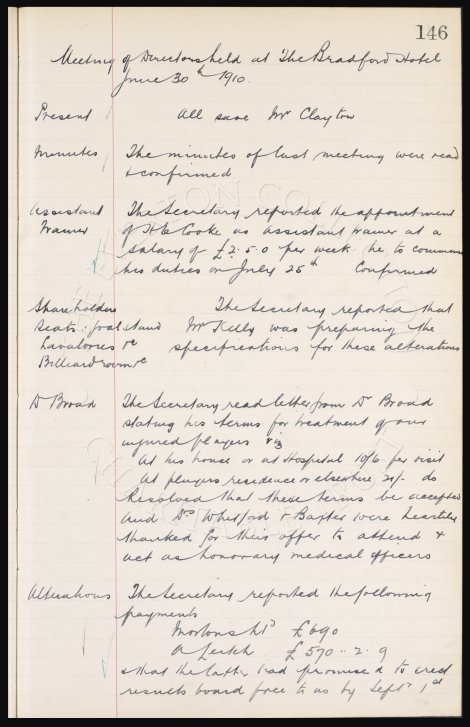 146
Meeting of Directors held at The Bradford Hotel
June 30th 1910.
Present All save Mr Clayton
Minutes The minutes of last meeting were read
& confirmed
Assistant The Secretary reported the appointment
Trainer of H E Cooke as assistant trainer at a
salary of £2.5.0 per week he to commence
his duties on July 25th Confirmed
Shareholders The Secretary reported that
Seats. Goal stand Mr Kelly was preparing the
Lavatories &c specifications for these alterations
Billiard room &c
Dr Broad The Secretary read letter from Dr Broad
stating his terms for treatment of our
injured players viz
At his house or at Hospital 10/6 per visit
At players residence or elsewhere 21/- do
Resolved that these terms be accepted
and Drs Whitford & Baxter were heartily
thanked for their offer to attend &
act as honorary medical officers
Alterations The Secretary reported the following
payments
Mortons Ltd £690
A Leitch £570..2.9
& that the latter had promised to erect
results board free to us by Septr 1st